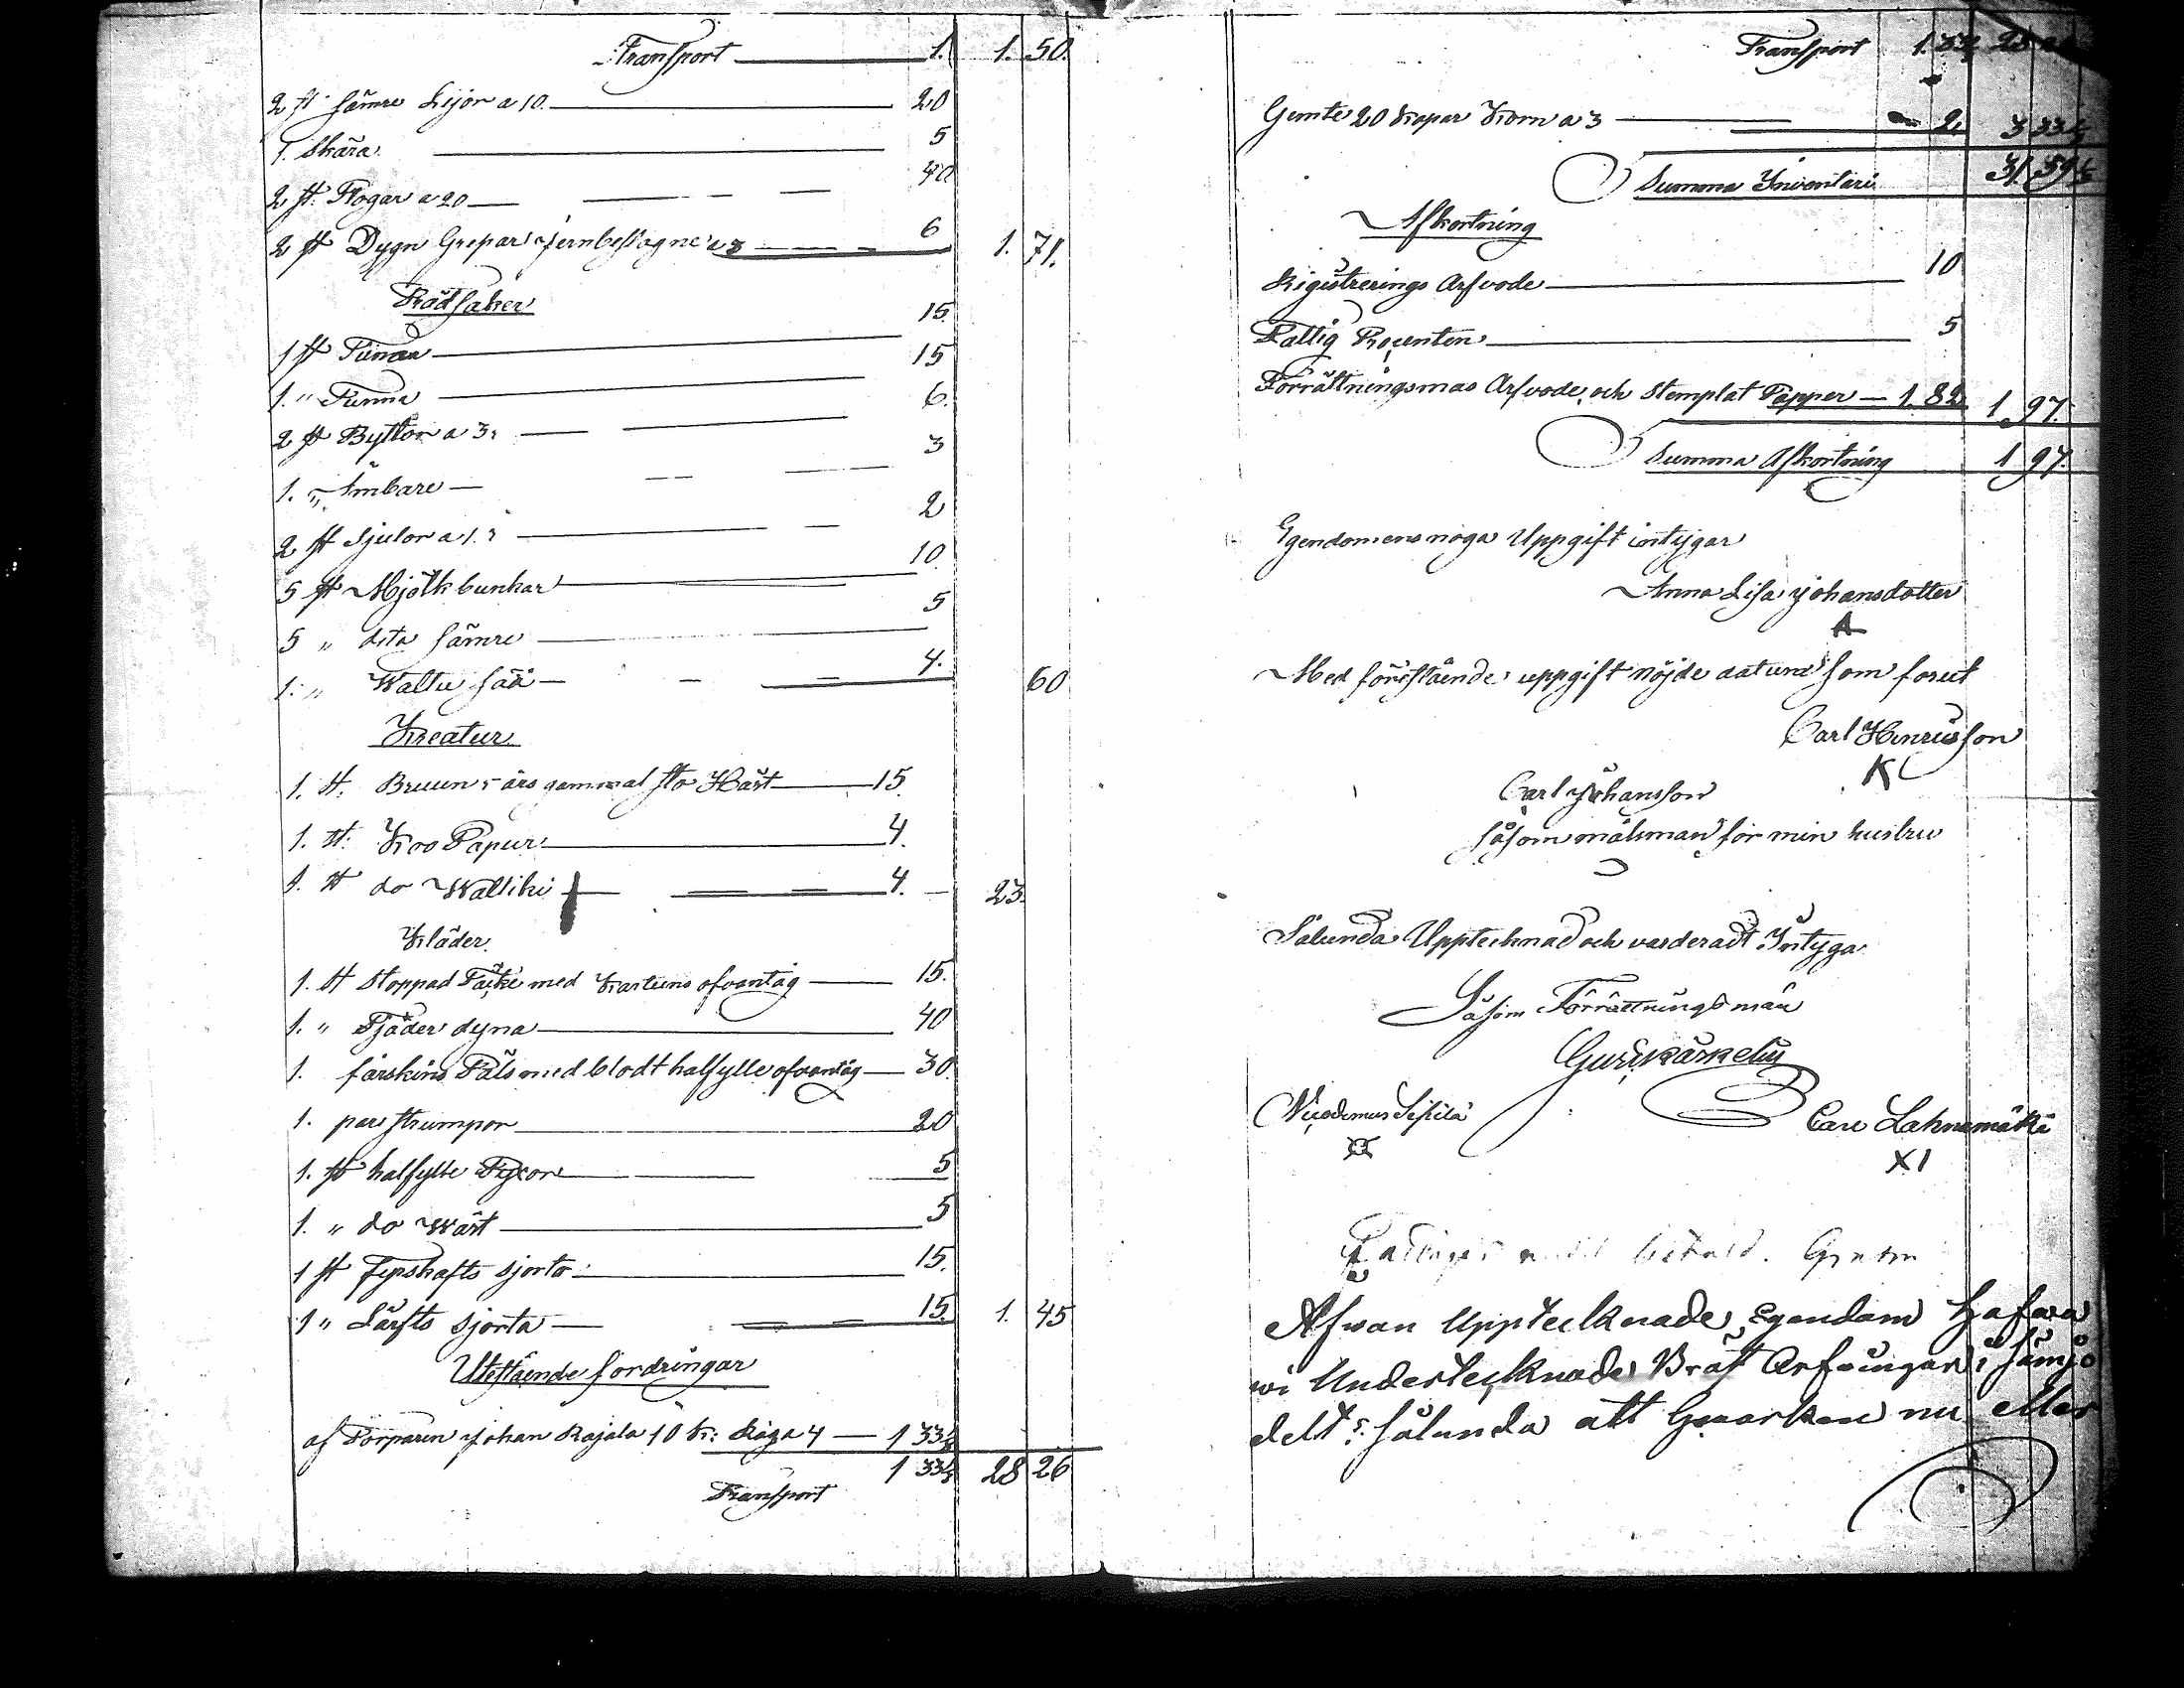 Transport 1. 1. 50.
2 st. sämre Lijor a 10. 20
1. Skära. 5
2 st. Plogar a 20 40
2 st Dygn Grepar jernbeslagne a 3 6 1. 71.
Trädsaker
1 st Tunna 15.
1. " Tunna 15
2 st Byttor a 3 6.
1. " Ämbare 3
2 st Sjulor a 1. 2
5 st Mjölk bunkar 10
5 " dito sämre 5
1. " Wattu såå 4. 60
Kreatur
1. st. Bruun 5 års gammal sto Häst 15.
1. st: Koo Papur 4.
1. st do Walliki 4. 23.
Kläder.
1. st Stoppad Täcke med Kartuns ofvantåg 15.
1. " Fjäder dyna 40
1. fårskins Päls med blodt halfylle ofvantåg 30.
1. par strumpor 20
1. st halfylle Byxor 5
1. " do Wäst 5
1 st fyrskafts sjorta 15.
1 " Lärfts sjorta 15. 1. 45
Utestående fordringar
af Torparen Johan Rajala 10 k: Råga 4 1 33⅓
1 33⅓ 28 26
Transport
Transport 1. 33⅓
Gemte 20 Kapar Korn a 3 2. 3 33⅓
Summa Inventari 31. 59⅓
Afkortning
Rigistrerings Arfvode 10
Fattig Procenten 5
Förrättningsmas Arfvode och Stemplat Papper 1. 82 1. 97.
Summa Afkortning 1 97.
Egendomens noga Uppgift intygar
Anna Lisa Johansdotter
A
Med förestående uppgift nöjde datum som forut
Carl Henricsson
K
Carl Johansson
såsom målsman för min hustru
Sålunda Upptecknad och värderadt Intyga
Såsom Förrättningsmän
Nicodemus Sippilä
Carl Lahnamäki
XI
Fattige medel betald.
Afwan Upptecknade Egendom hafwa
wi Undertecknade Bräst Arfwingar i sämjo
delt: sålunda att Hwarken nu eller